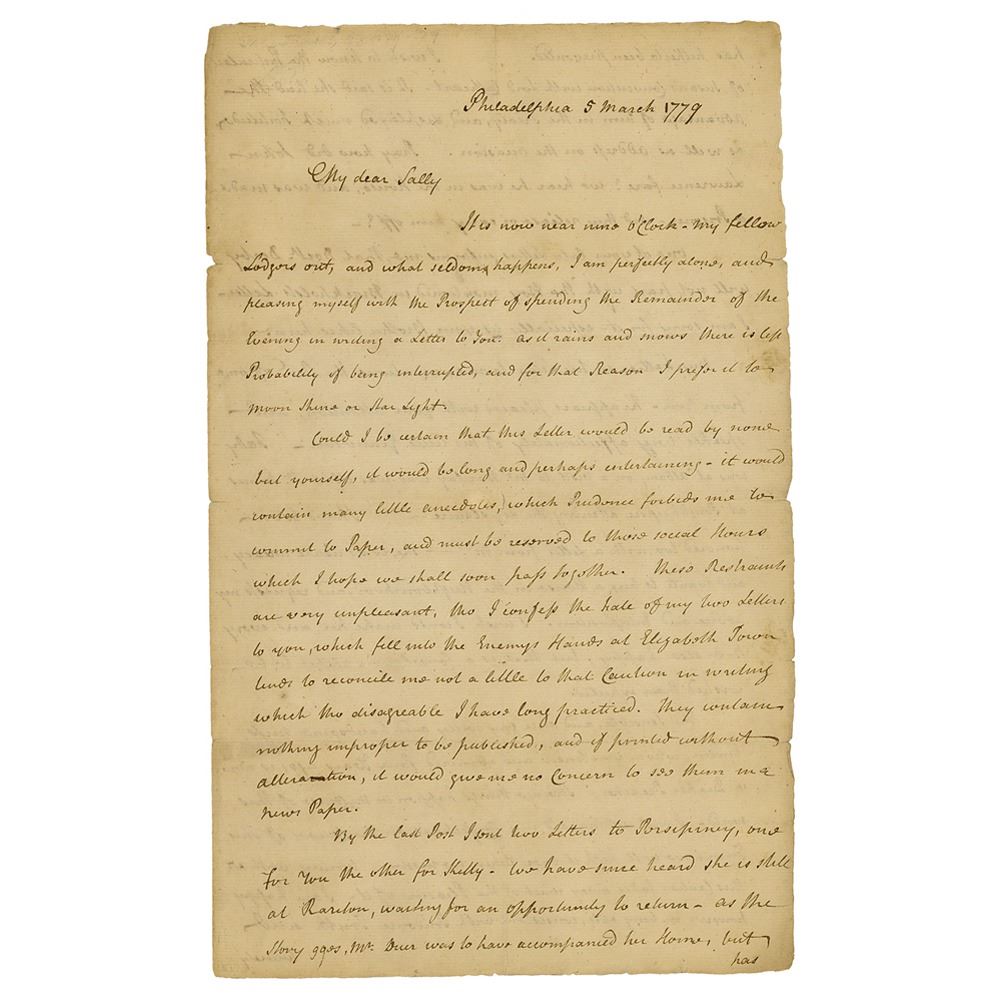 Philadelphia 5 March 1779
My dear Sally
It is now near nine o'Clock - my fellow
Lodgers out, and what seldom happens, I am perfectly alone, and
pleasing myself with the Prospect of spending the Remainder of the
Evening in writing a Letter to You. as it rains and snows there is less
Probability of being interrupted, and for that Reason I prefer it to
moon shine or star Light.
Could I be certain that this Letter would be read by none
but yourself, it would be long and perhaps entertaining - it would
contain many little anecdotes, which Prudence forbids me to
commit to Paper, and must be reserved to those social Hours
which I hope we shall soon pass together. These Restraints
are very unpleasant, tho I confess the fate of my two Letters
to you, which fell into the Enemys Hands at Elizabeth Town
tends to reconcile me not a little to that Caution in writing
which tho disagreable I have long practiced. They contain
nothing improper to be published, and if printed without
alteration, it would give me no Concern to see them in a
News Paper.
By the last Post I sent two Letters to Persipiney, one
For You the other for Kitty - We have since heard she is still
at Rariton, waiting for an opportunity to return - as the
Story goes, Mr. Duer was to have accompanied her Home, but
has